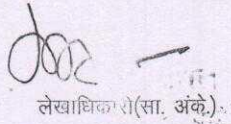 लेखाधिकारी(सा. अंके.)